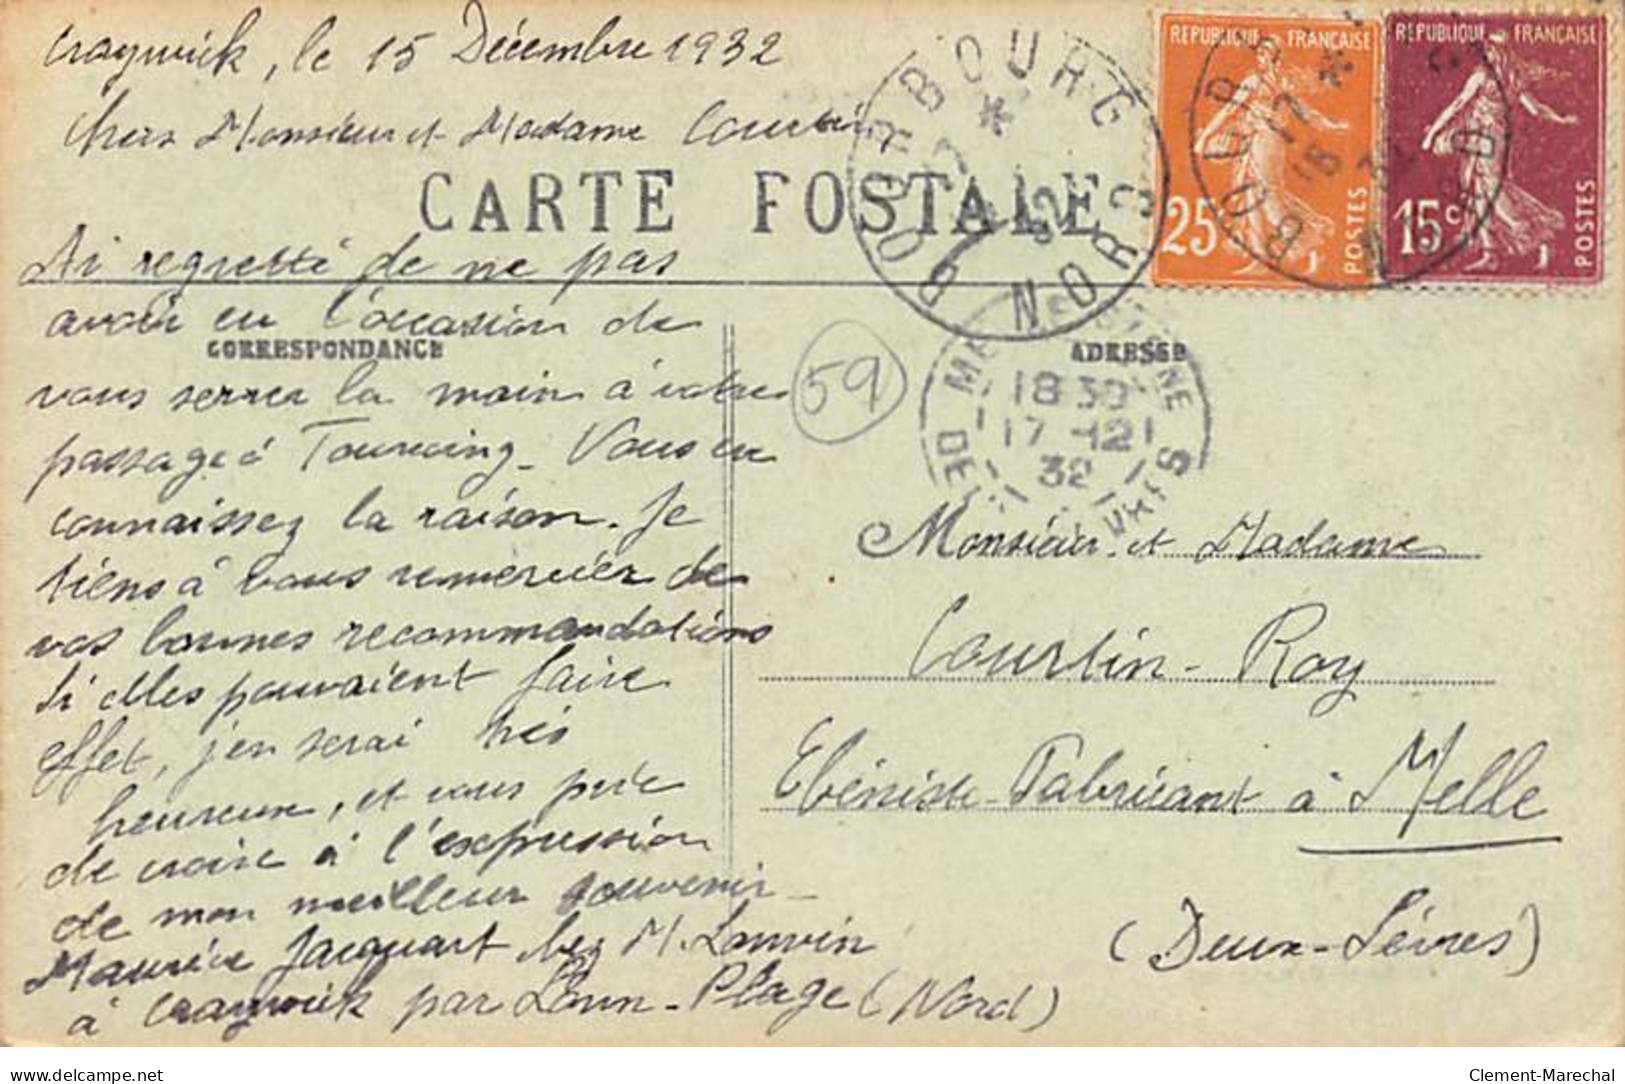 Craywick, le 15 Décembre 1932
Chers Monsieur et Madame Courtin
CARTE POSTALE
Ai regretté de ne pas
avoir eu l'occasion de
CORRESPONDANCE
vous serrer la main à votre
passage à Tourcoing. Vous en
connaissez la raison. Je
tiens à vous remercier de
vos bonnes recommandations
Si elles pouvaient faire
effet, j'en serai très
heureux, et vous prie
de croire à l'expression
de mon meilleur souvenir
Maurice Jacquart chez M. Lanvin
à Craywick par Loon-Plage (Nord)
REPUBLIQUE FRANÇAISE
25c
POSTES
REPUBLIQUE FRANÇAISE
15c
POSTES
BOURBOURG
NORD
BOURBOURG
NORD
17
32
59
ADRESSE
18 30
17-12
32
Monsieur et Madame
Courtin-Roy
Ebéniste-Fabricant à Melle
(Deux-Sèvres)
delcampe.net
Clement-Marechal